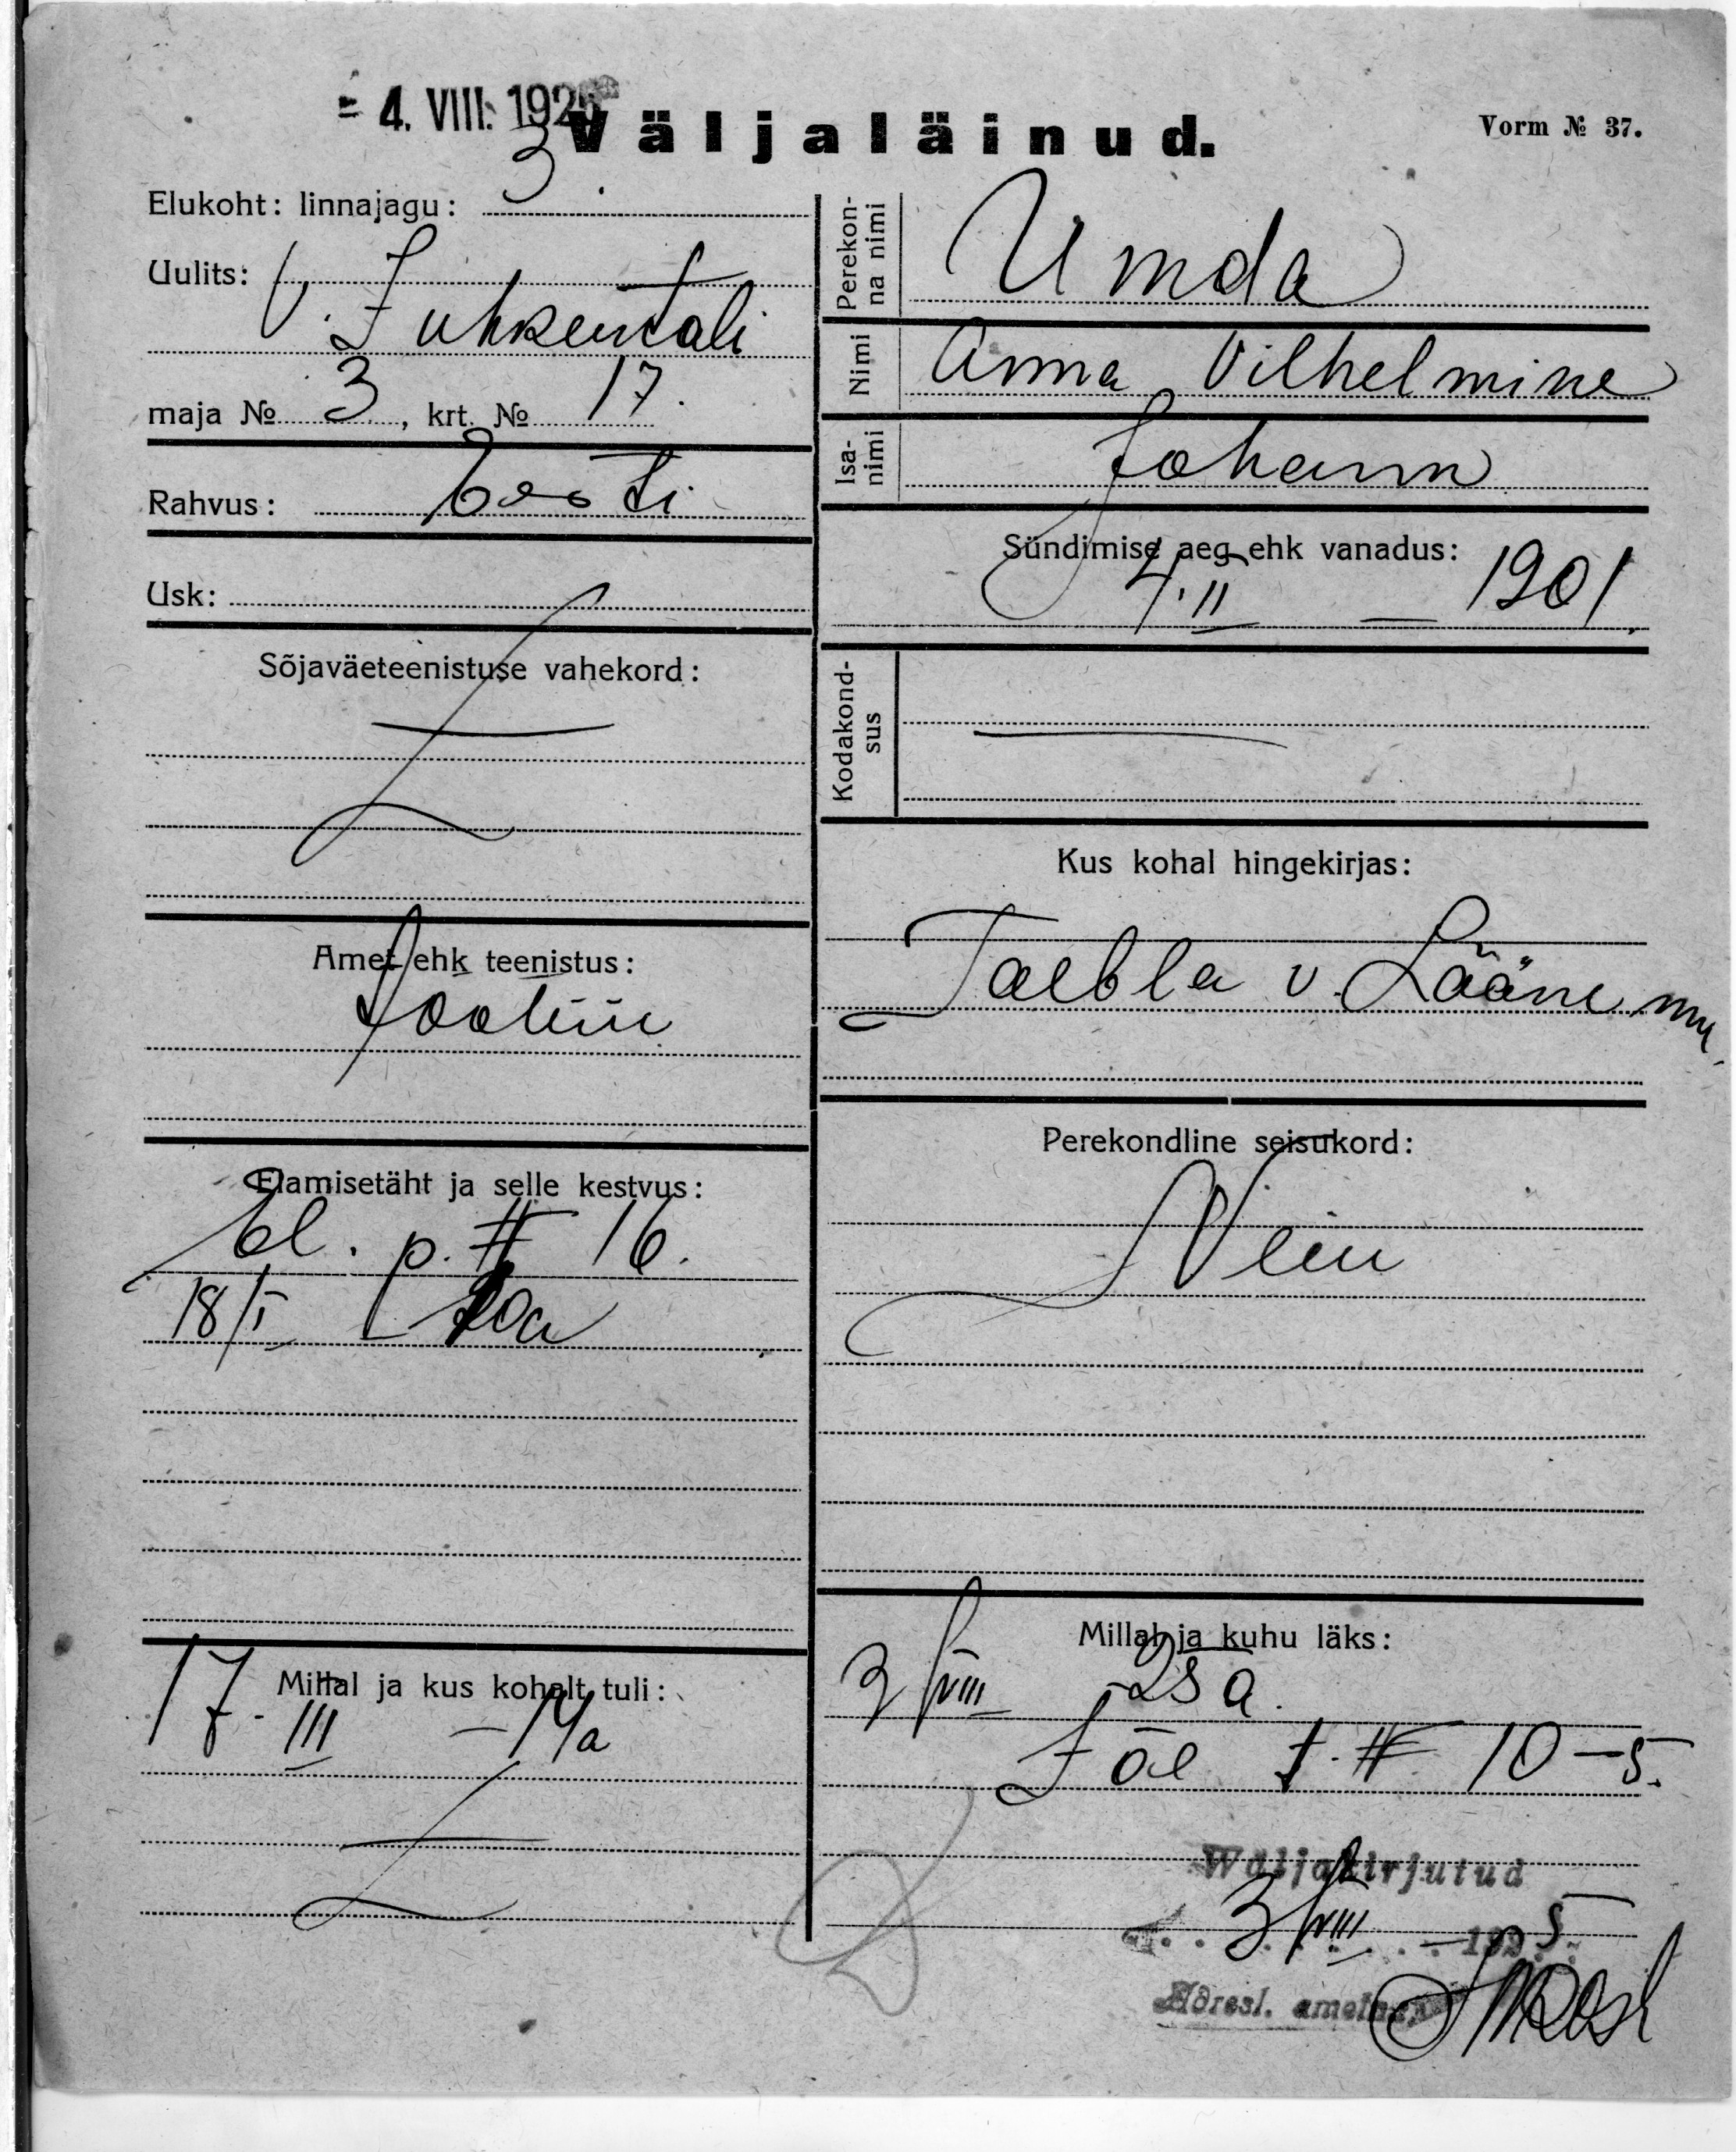 = 4. VIII. 1925
Väljaläinud.
Vorm № 37.
Elukoht: linnajagu: 3
Uulits: V. Juhkentali
maja № 3, krt. № 17.
Rahvus: Eesti
Usk:
Sõjaväeteenistuse vahekord:
Amet ehk teenistus:
Elamisetäht ja selle kestvus:
El. p. # 16.
18/I
Millal ja kus kohalt tuli:
17. III
Perekonna nimi
Umda
Nimi
Anna Vilhelmine
Isanimi
Johann
Sündimise aeg ehk vanadus:
4. II — 1901.
Kodakondsus
Kus kohal hingekirjas:
Taebla v. Lääne
Perekondline seisukord:
Millal ja kuhu läks:
3/VIII 25 a.
Jõe t. # 10–5.
Wäljakirjutud
3/VIII – 1925
Adresl. ametnik